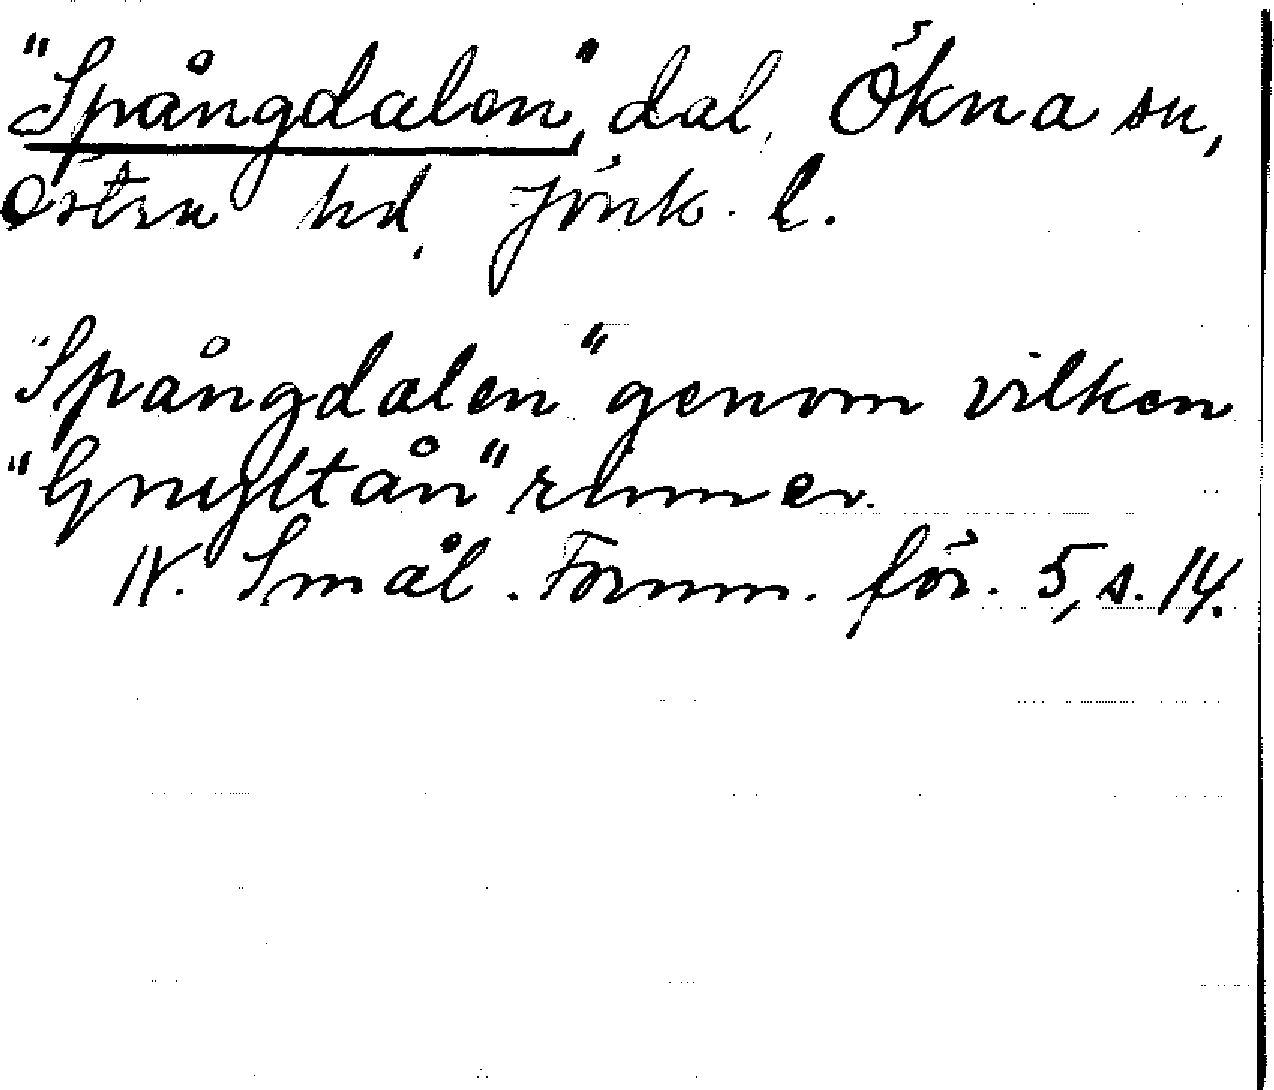 "Spångdalen", dal, Ökna sn,
Östra hd, Jönk. l.
"Spångdalen" genom vilken
"Gnyltån" rinner.
N. Smål. Fornm. för. 5, s. 14.